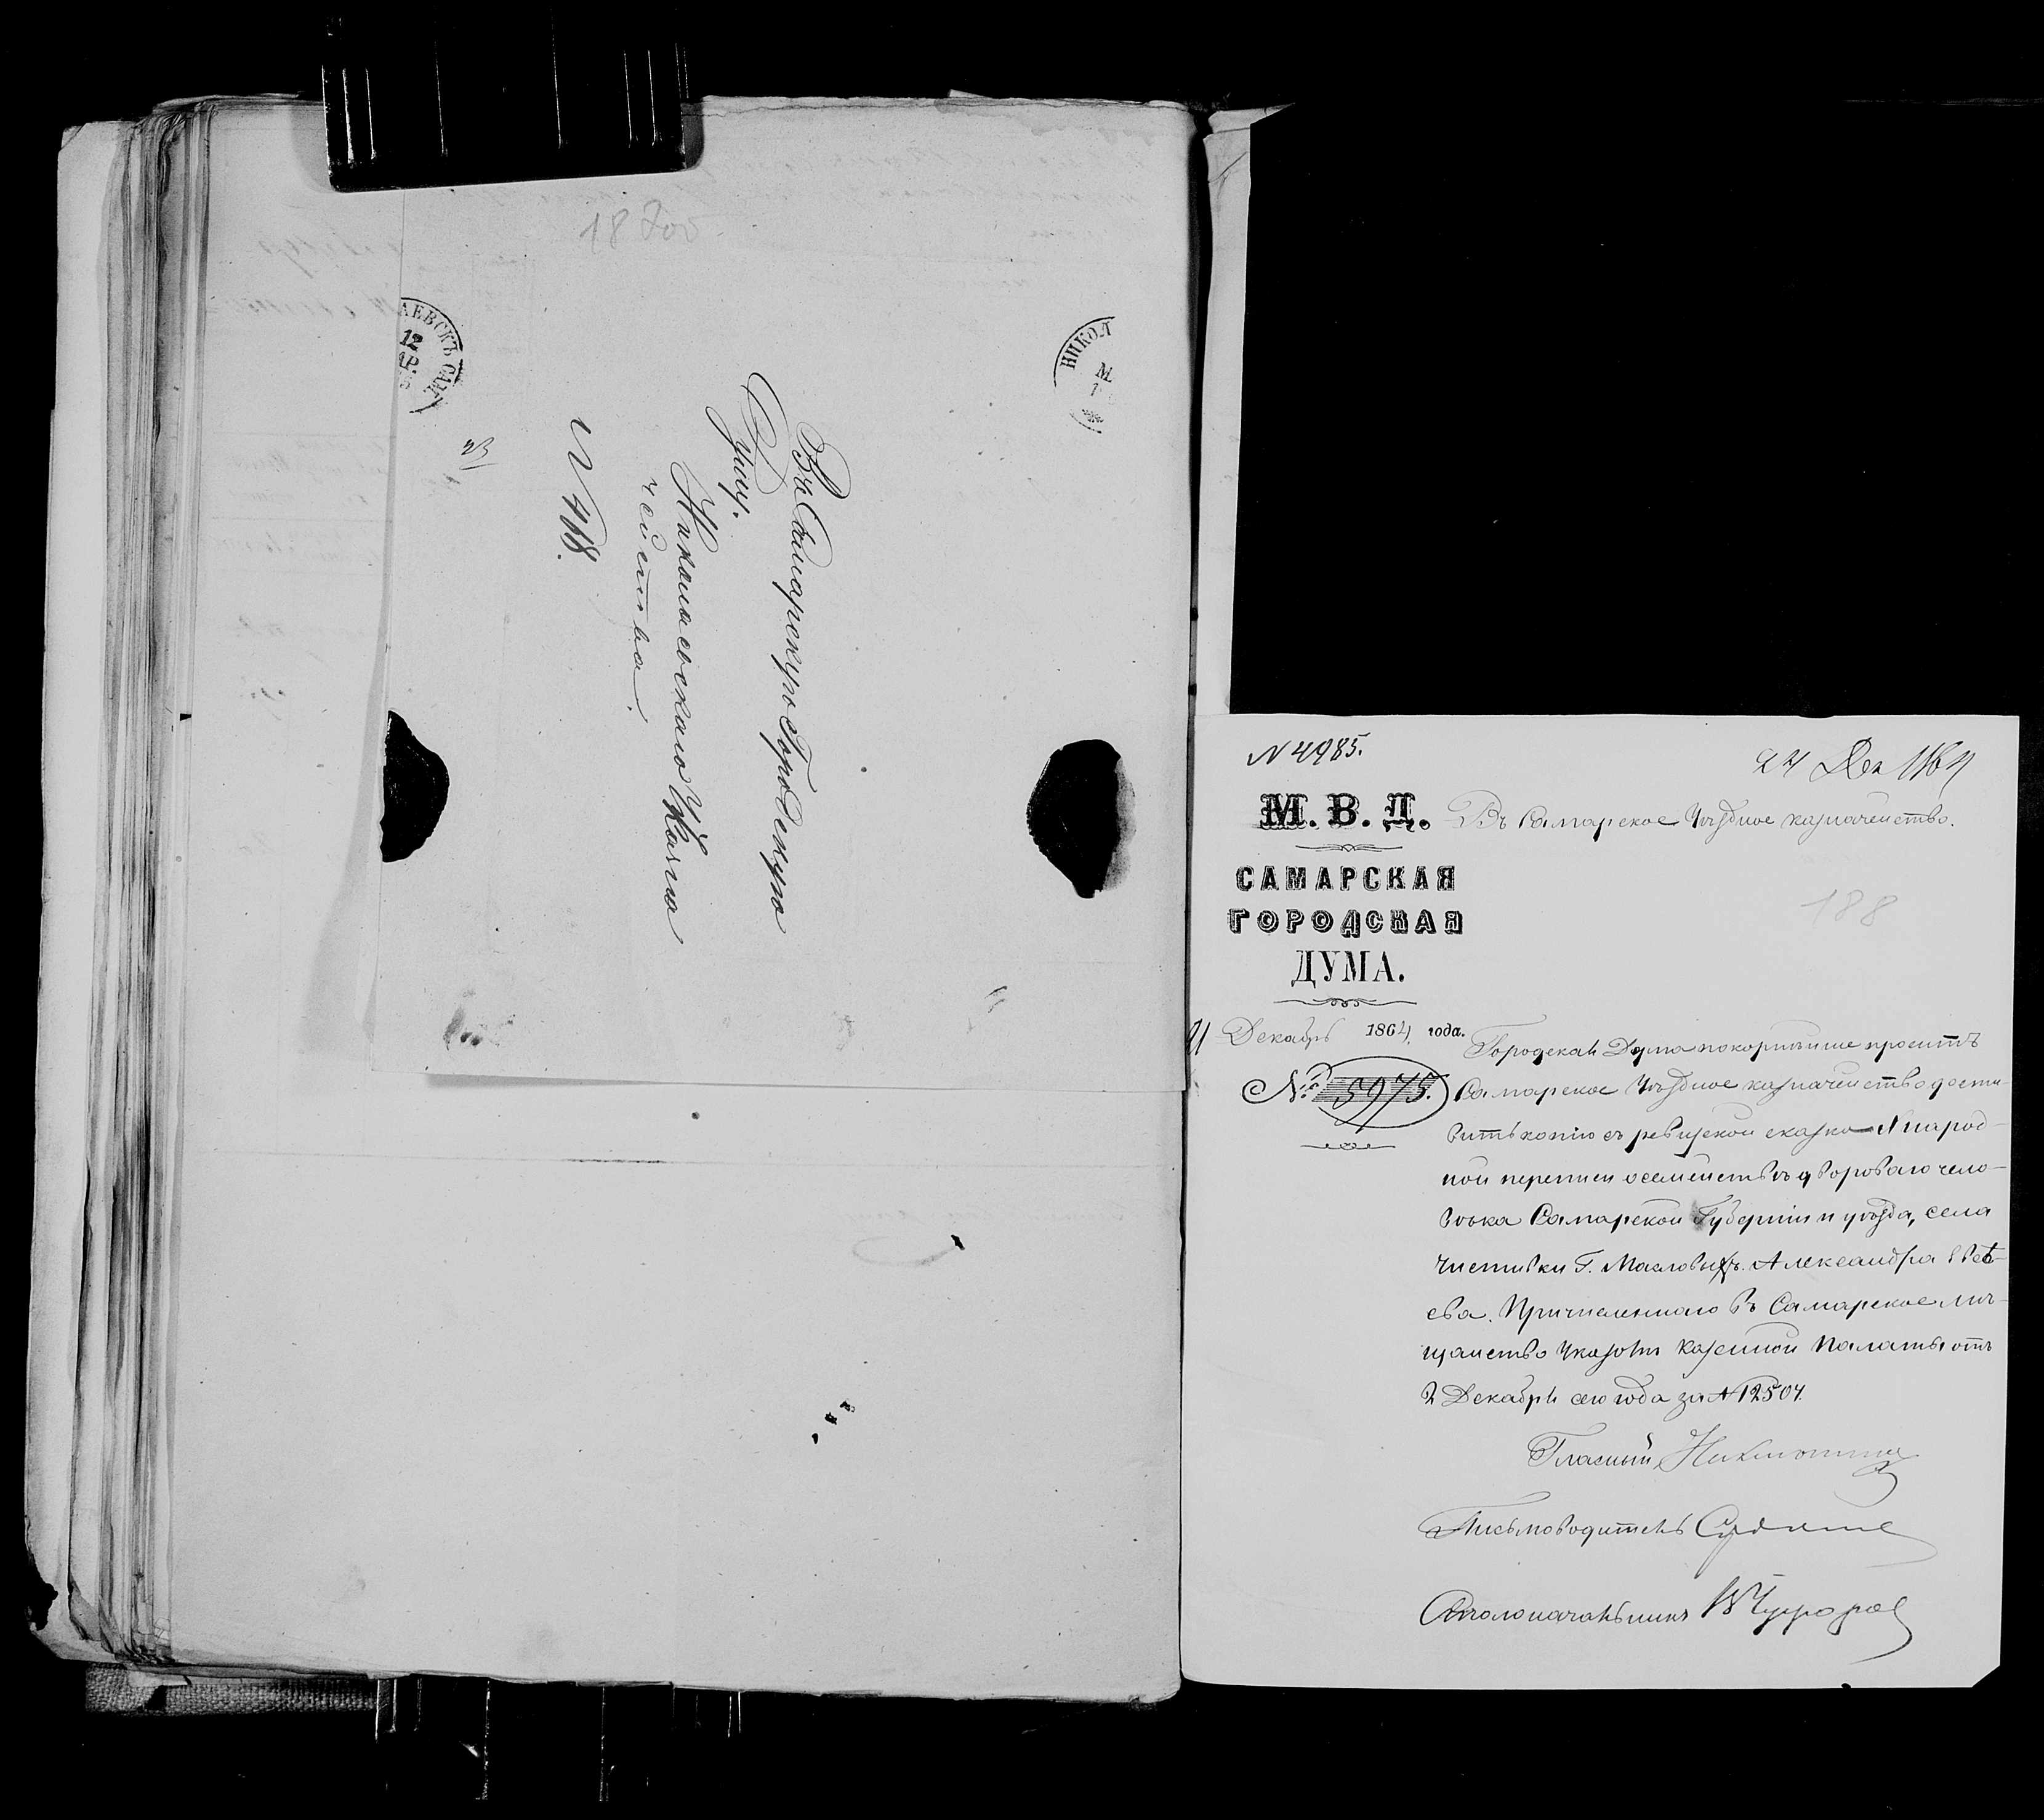 18 700
АЕВСКЪ САМ.
12
НИКОЛ
М
Въ Самарскую Городскую
Думу.
Николаевскаго Уѣ Казна
чейства.
N 418.
N 4985.
24 Дек 1864
М. В. Д.
Въ Самарское Уѣздное казначейство.
САМАРСКАЯ
ГОРОДСКАЯ
ДУМА.
188
21 Декабрь 1864 года.
№ 5975.
Городская Дума покорнѣйше проситъ
Самарское Уѣздное казначейство доста-
вить копію съ ревизской сказки народ-
ной переписи о семействѣ двороваго чело-
вѣка Самарской Губерніи и уѣзда, села
Чистовки Г. Масловыхъ. Александра
ева. Причисленнаго въ Самарское мѣ-
щанство Указомъ Казенной Палаты отъ
2 Декабря сего года за № 12504.
Гласный
Письмоводитель
Столоначальникъ